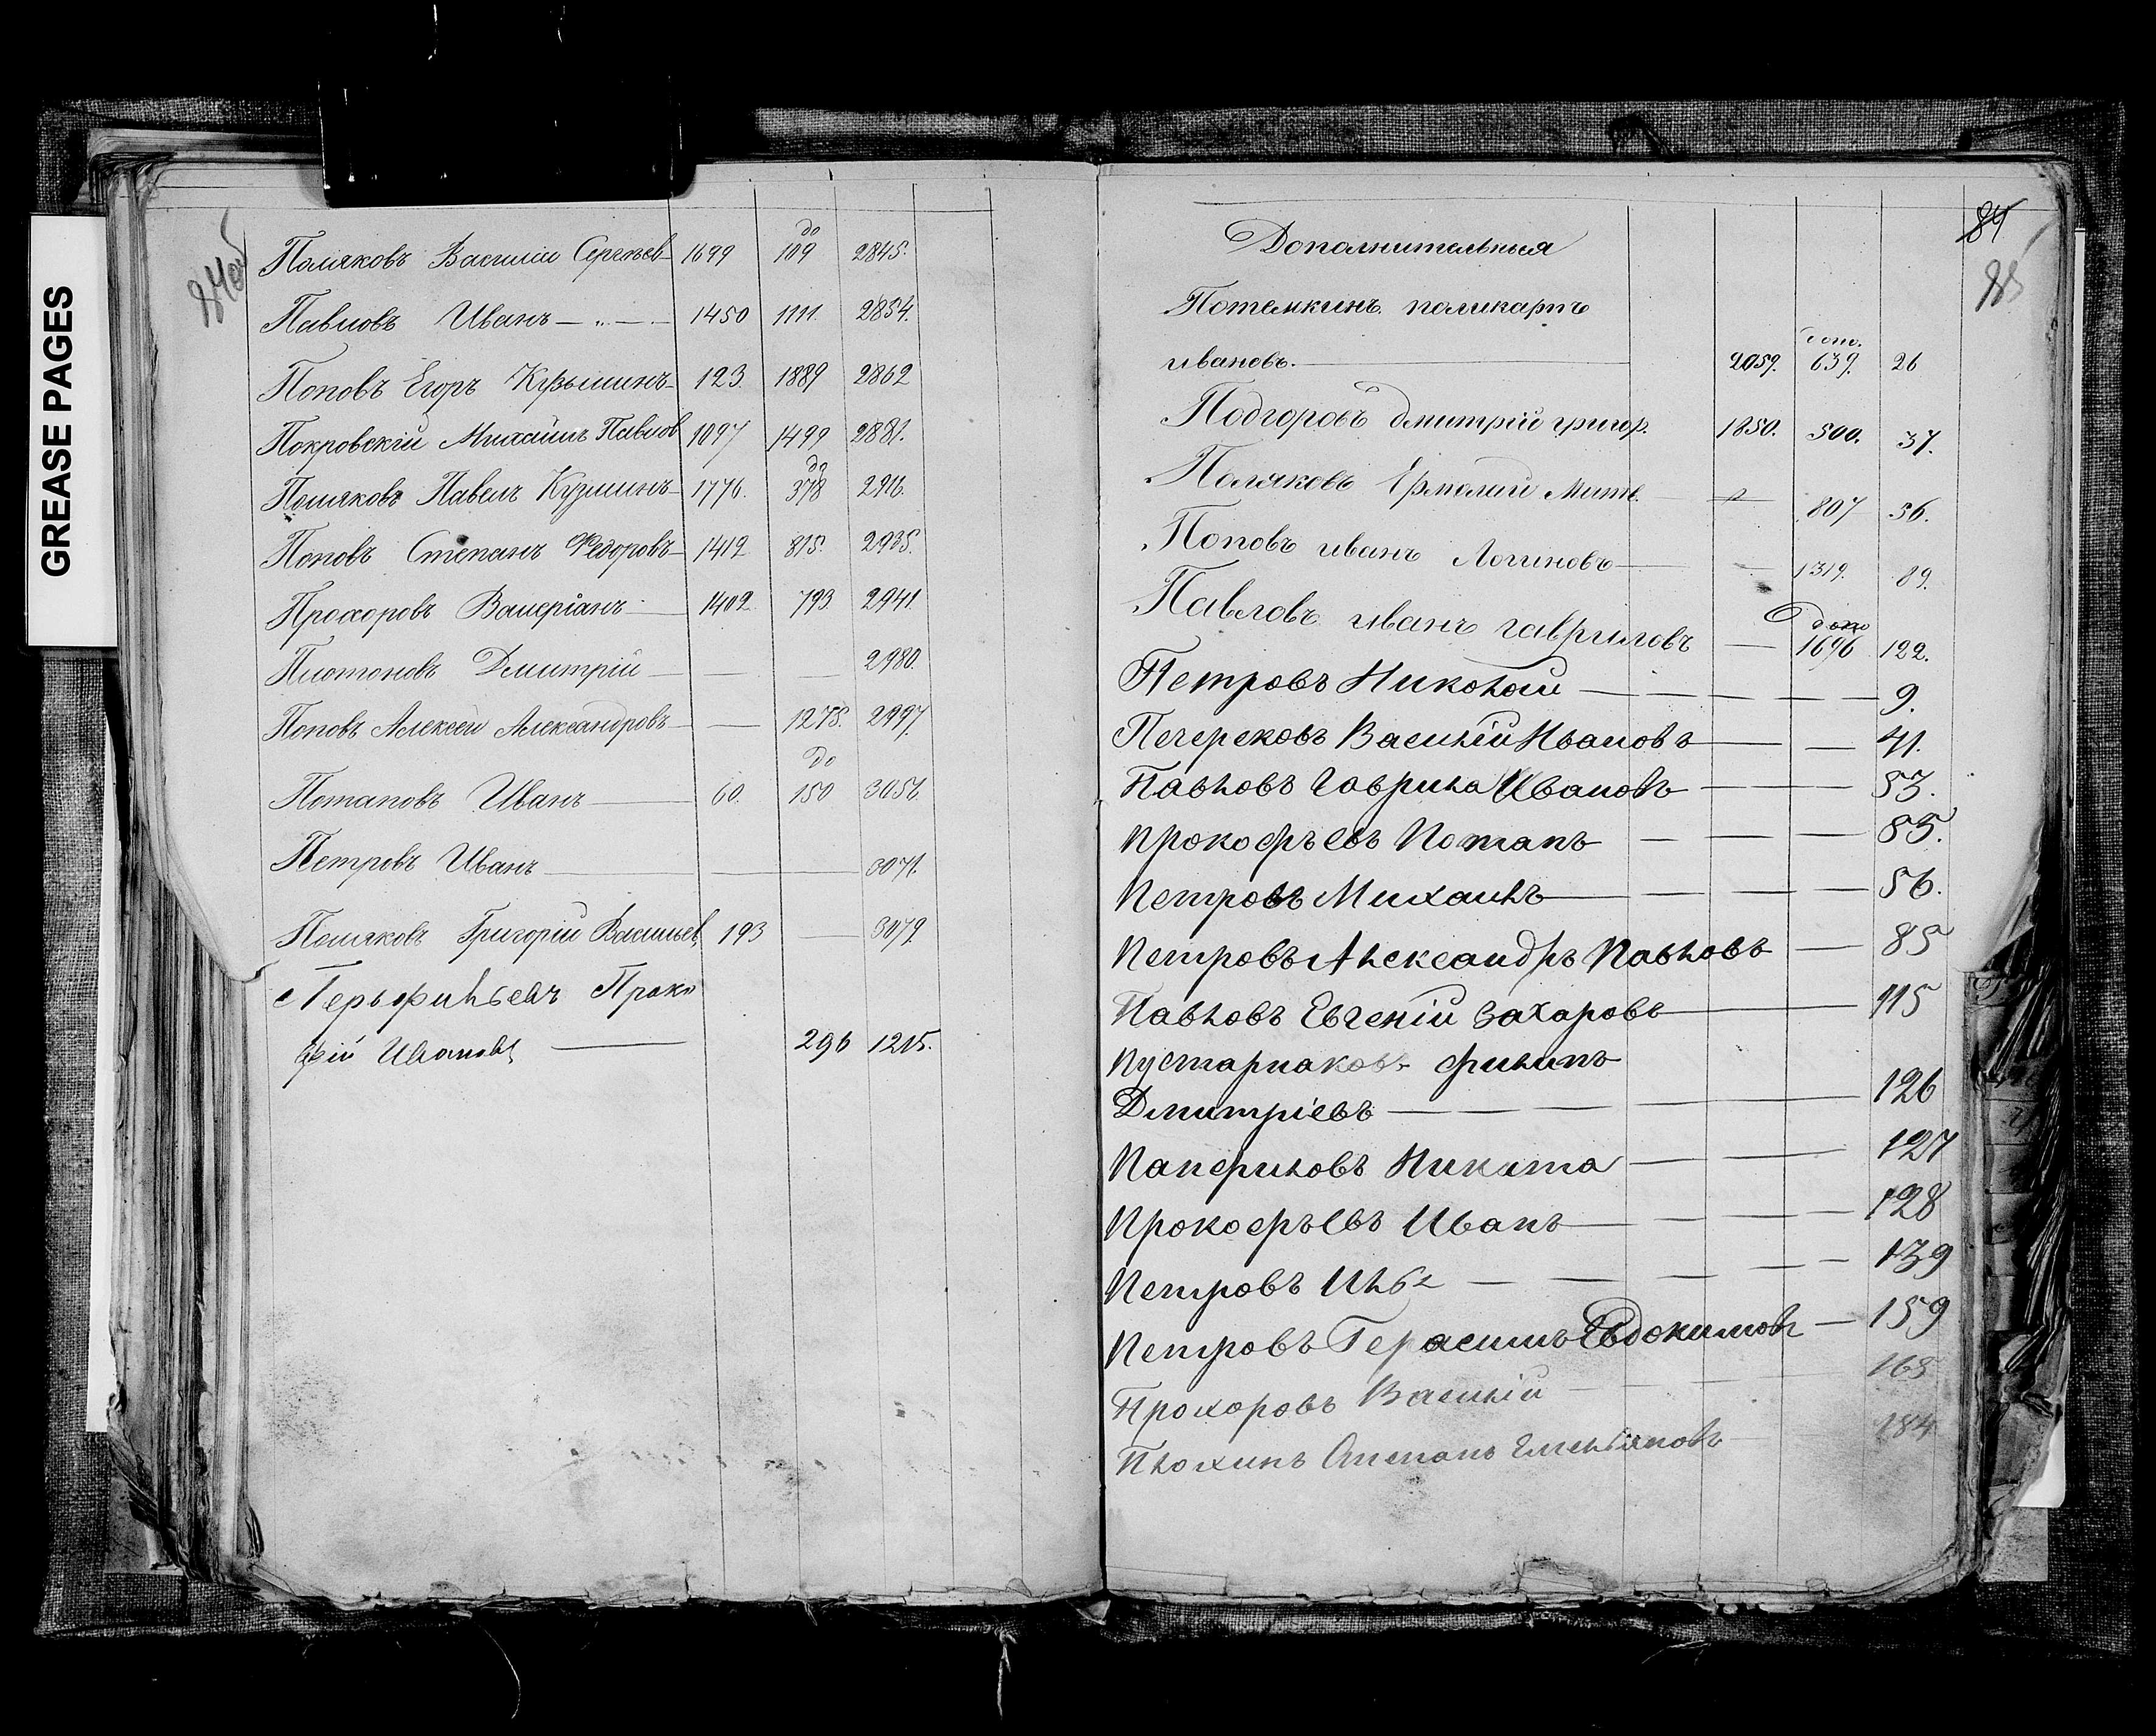 GREASE PAGES
84об
Поляковъ Василій Сергѣев 1699 до 109 2845.
Павловъ Иванъ — „ — 1450 1111 2854.
Поповъ Егоръ Кузьминъ 123. 1889 2862
Покровскій Михаилъ Павлов 1097 1499 2881.
Поляковъ Павелъ Кузминъ 1776. до 378 2916.
Поповъ Степанъ Федоровъ 1412 815. 2935.
Прохоровъ Валеріанъ 1402 793. 2941.
Платоновъ Дмитрій — — 2980.
Поповъ Алексей Александровъ — 1278. 2997.
Потаповъ Иванъ 60. до 150 3056.
Петровъ Иванъ — — 3071.
Поляковъ Григорій Васильев 193 — 3079.
Перьфильевъ Проко
фій Ивановъ — 296 1215.
84
85
Дополнительныя
Потемкинъ поликарпъ
ивановъ. — 2059. допо. 639. 26
Подгоровъ дмитрій григор. 1850. 500. 37.
Поляковъ Ермолай Мит — 807 56.
Поповъ иванъ Логиновъ — 1319. 89.
Павловъ иванъ гавриловъ — допо 1696 122.
Петровъ Николай — 9.
Печерековъ Василій Ивановъ — 41.
Павловъ Гаврила Ивановъ — 53.
Прокофьевъ Потапъ — 85.
Петровъ Михаилъ — 56.
Петровъ Александръ Павловъ — 85
Павловъ Евгеній Захаровъ — 115
Пустарнаковъ Филипъ
Дмитріевъ — 126
Паперновъ Никита — 127
Прокофьевъ Иванъ — 128
Петровъ Илья — 139
Петровъ Герасимъ Евдокимовъ — 159
Прохоровъ Василій — 165
Плохинъ Степанъ Емельяновъ 184